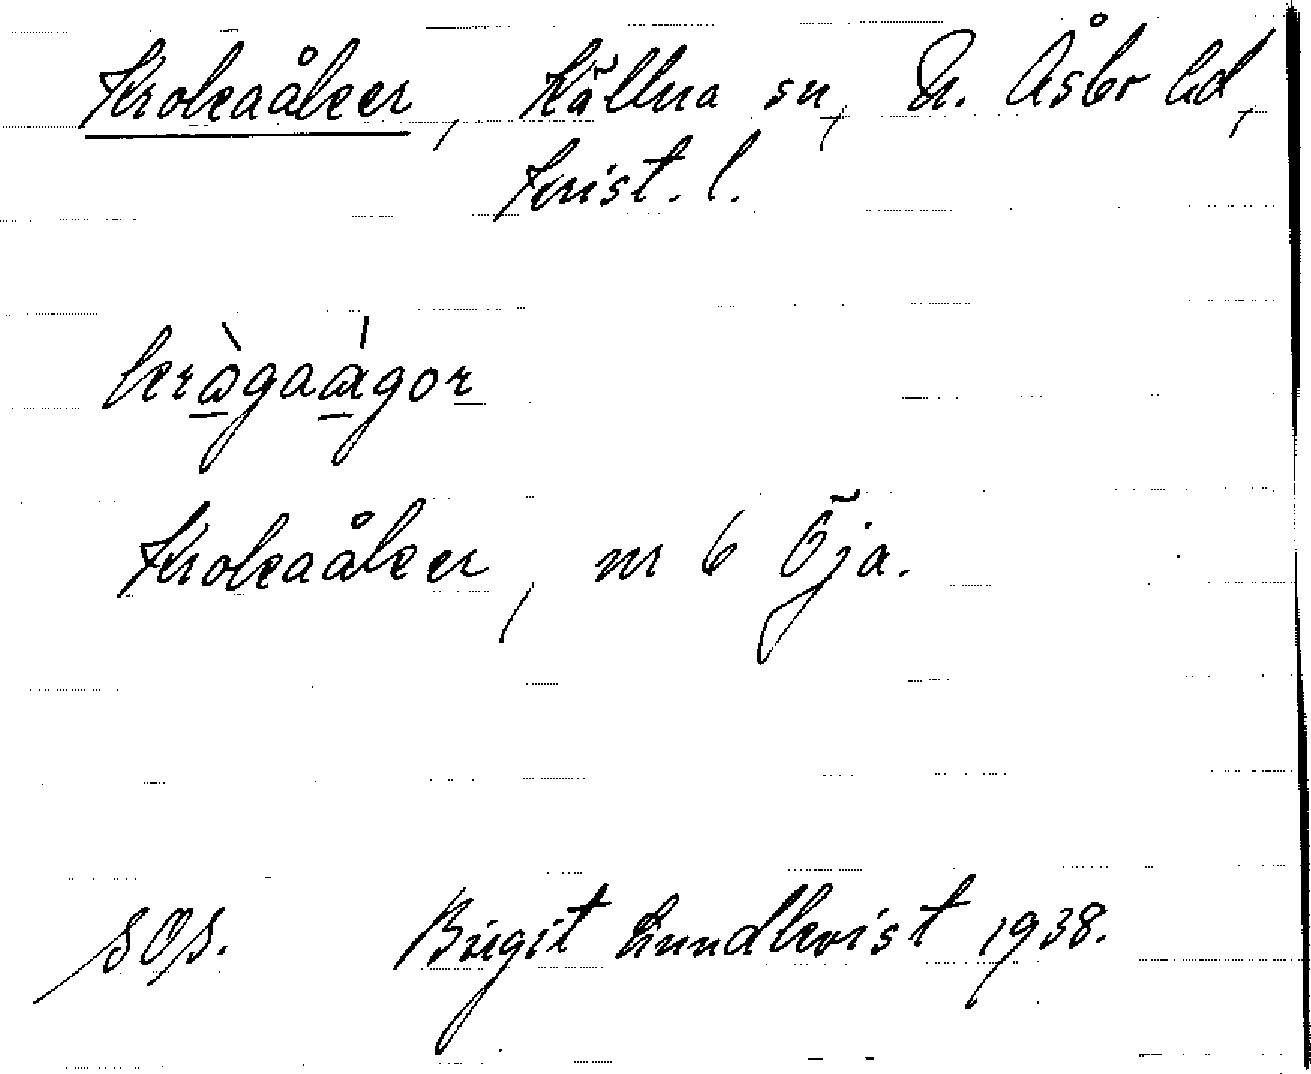 Krokaåker, Källna sn, N. Åsbo hd,
Krist. l.
krògaàgor
Krokaåker, nr 6 Öja.
Birgit Lundkvist 1938.